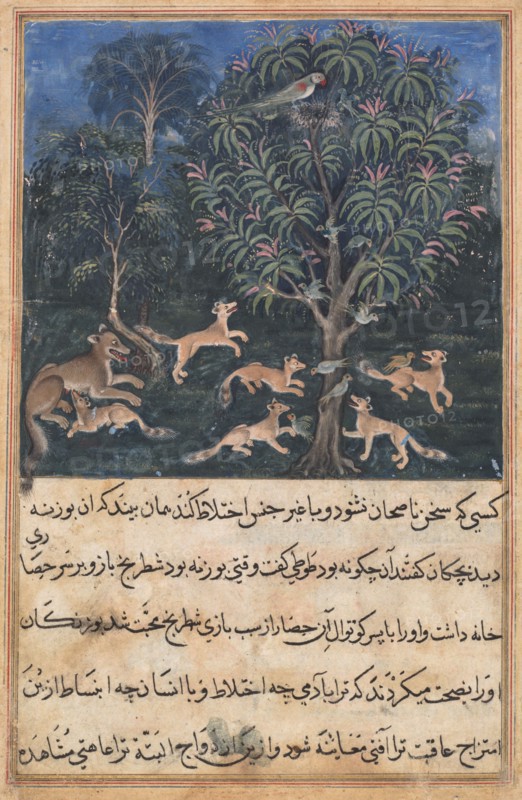 کسی که سخن ناصحان نشنود و با غیر جنس اختلاط کند همان بیند که آن بوزنه
دید بچکان گفتند آن چگونه بود طوطی گفت وقتی بوزنه بود شطرنج باز و بر سر حصاری
خانه داشت و او را با پسر کوتوال آن حصار از سبب بازی شطرنج محبت شد بوزنگان
او را نصیحت میکردند که ترا با آدمی چه اختلاط و با انسان چه انبساط از بن
امتزاج عاقبت ترا آفتی معاینه شود و از بن ازدواج البته ترا عاهتی مشاهده